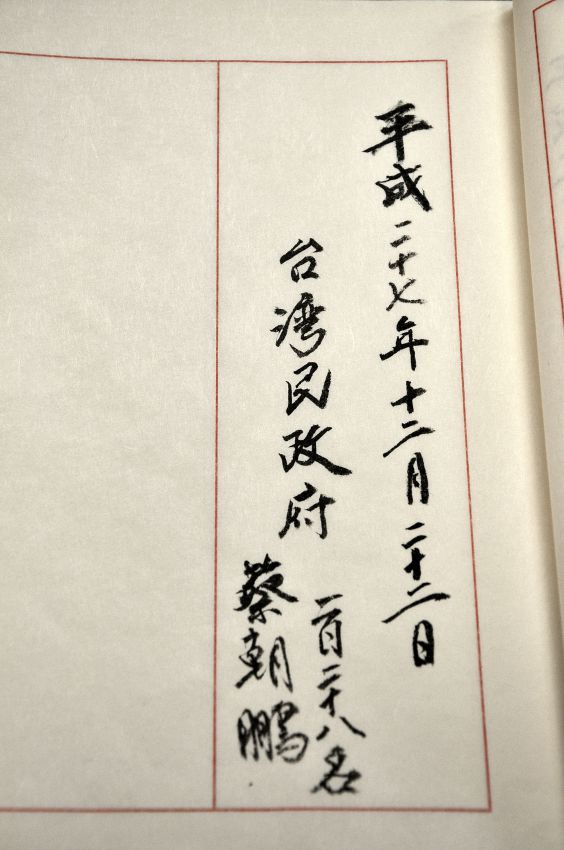 平成二十七年十二月二十二日
台湾民政府
一百二十八名
蔡朝鵬